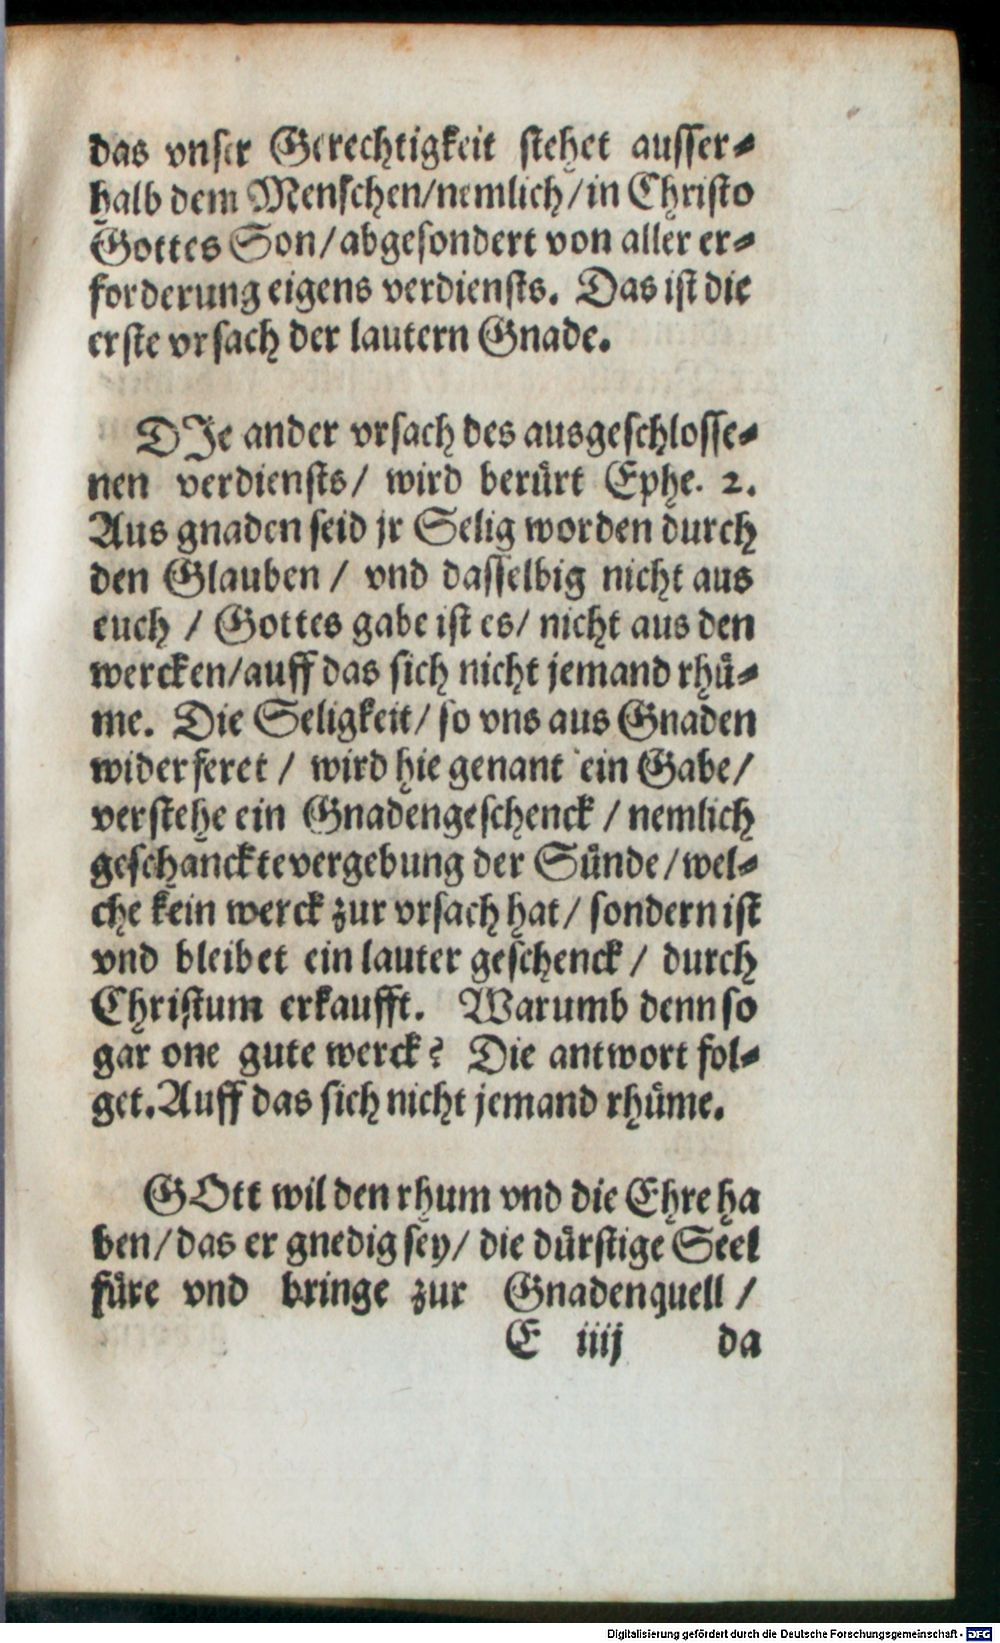 das vnser Gerechtigkeit stehet ausser⸗
halb dem Menschen/nemlich/in Christo
Gottes Son/abgesondert von aller er⸗
forderung eigens verdiensts. Das ist die
erste vrsach der lautern Gnade.
DJe ander vrsach des ausgeschlosse⸗
nen verdiensts/ wird berürt Ephe. 2.
Aus gnaden seid jr Selig worden durch
den Glauben / vnd dasselbig nicht aus
euch / Gottes gabe ist es/ nicht aus den
wercken/auff das sich nicht jemand rhü⸗
me. Die Seligkeit/ so vns aus Gnaden
widerferet / wird hie genant ein Gabe/
verstehe ein Gnadengeschenck / nemlich
geschanckte vergebung der Sünde/wel⸗
che kein werck zur vrsach hat/ sondern ist
vnd bleibet ein lauter geschenck / durch
Christum erkaufft. Warumb denn so
gar one gute werck? Die antwort fol⸗
get. Auff das sich nicht jemand rhüme.
GOtt wil den rhum vnd die Ehre ha
ben/das er gnedig sey/ die dürstige Seel
füre vnd bringe zur Gnadenquell /
E iiij da
Digitalisierung gefördert durch die Deutsche Forschungsgemeinschaft - DFG